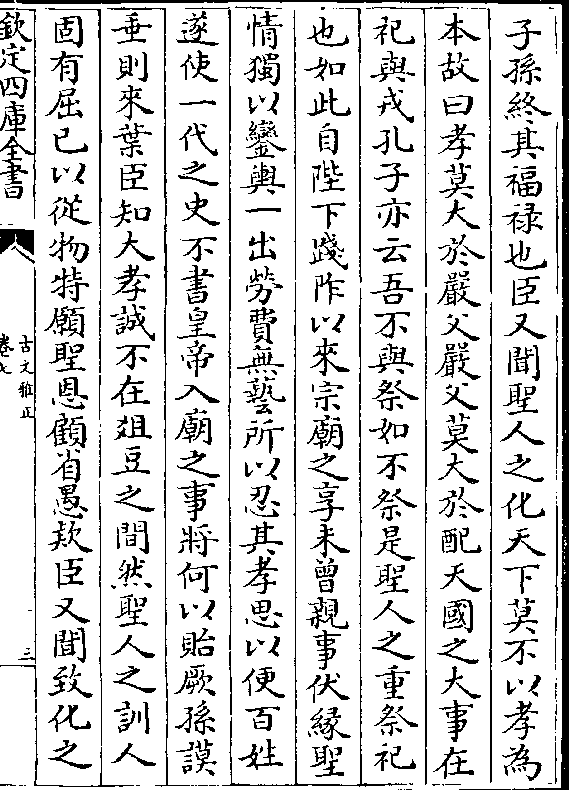 子孫終其福禄也臣又聞聖人之化天下莫不以孝為
本故曰孝莫大於嚴父嚴父莫大於配天國之大事在
祀與戎孔子亦云吾不與祭如不祭是聖人之重祭祀
也如此自陛下踐阼以來宗廟之享未曾親事伏縁聖
情獨以鑾輿一出勞費無藝所以忍其孝思以便百姓
遂使一代之史不書皇帝入廟之事將何以貽厥孫謨
垂則來葉臣知大孝誠不在俎豆之間然聖人之訓人
固有屈已以從物特願聖恩顧省愚欵臣又聞致化之
欽定四庫全書
古文雅正
卷七
三